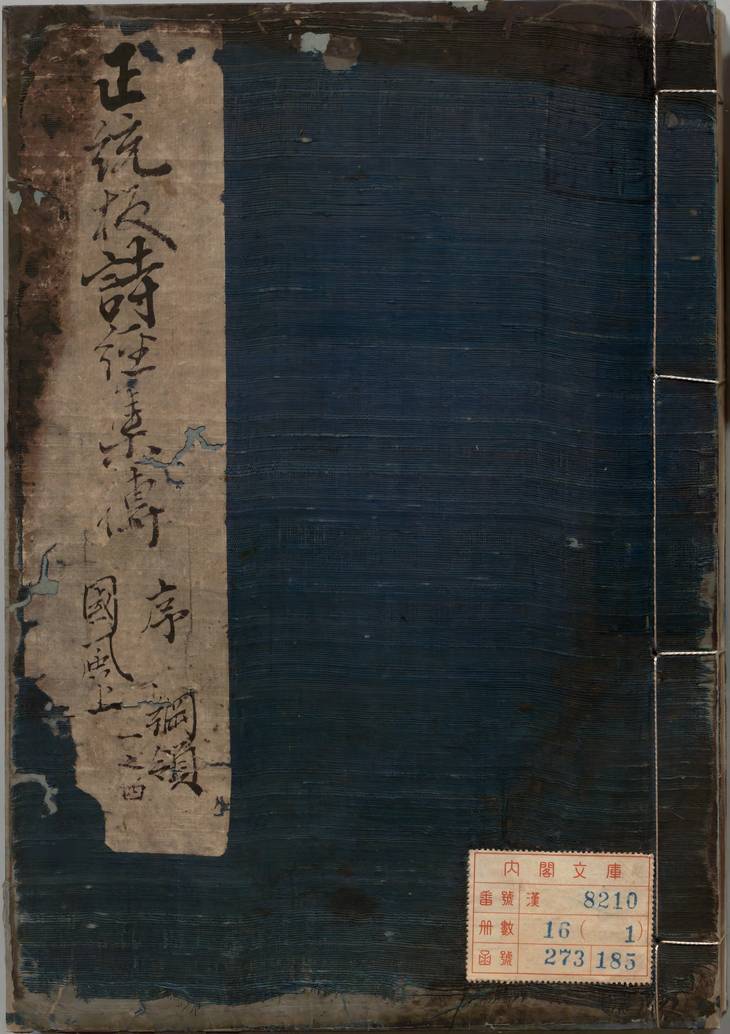 正統板詩經集傳
序 綱領
國風上 一之四
內閣文庫
番號 漢 8210
冊數 16(1)
函號 273 185